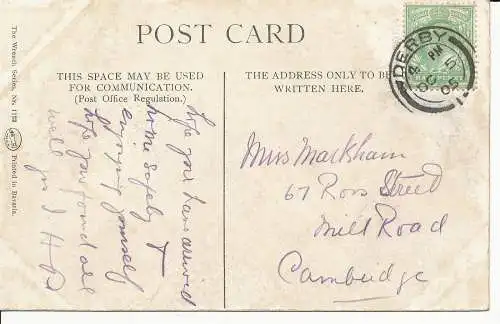 POST CARD
THIS SPACE MAY BE USED
FOR COMMUNICATION.
(Post Office Regulation.)
THE ADDRESS ONLY TO BE
WRITTEN HERE.
The Wrench Series, No.
Printed in Bavaria.
DERBY
hope you have arrived
home safely &
enjoying yourself
hope you found all
well
Miss Markham
67 Ross Street
Mill Road
Cambridge